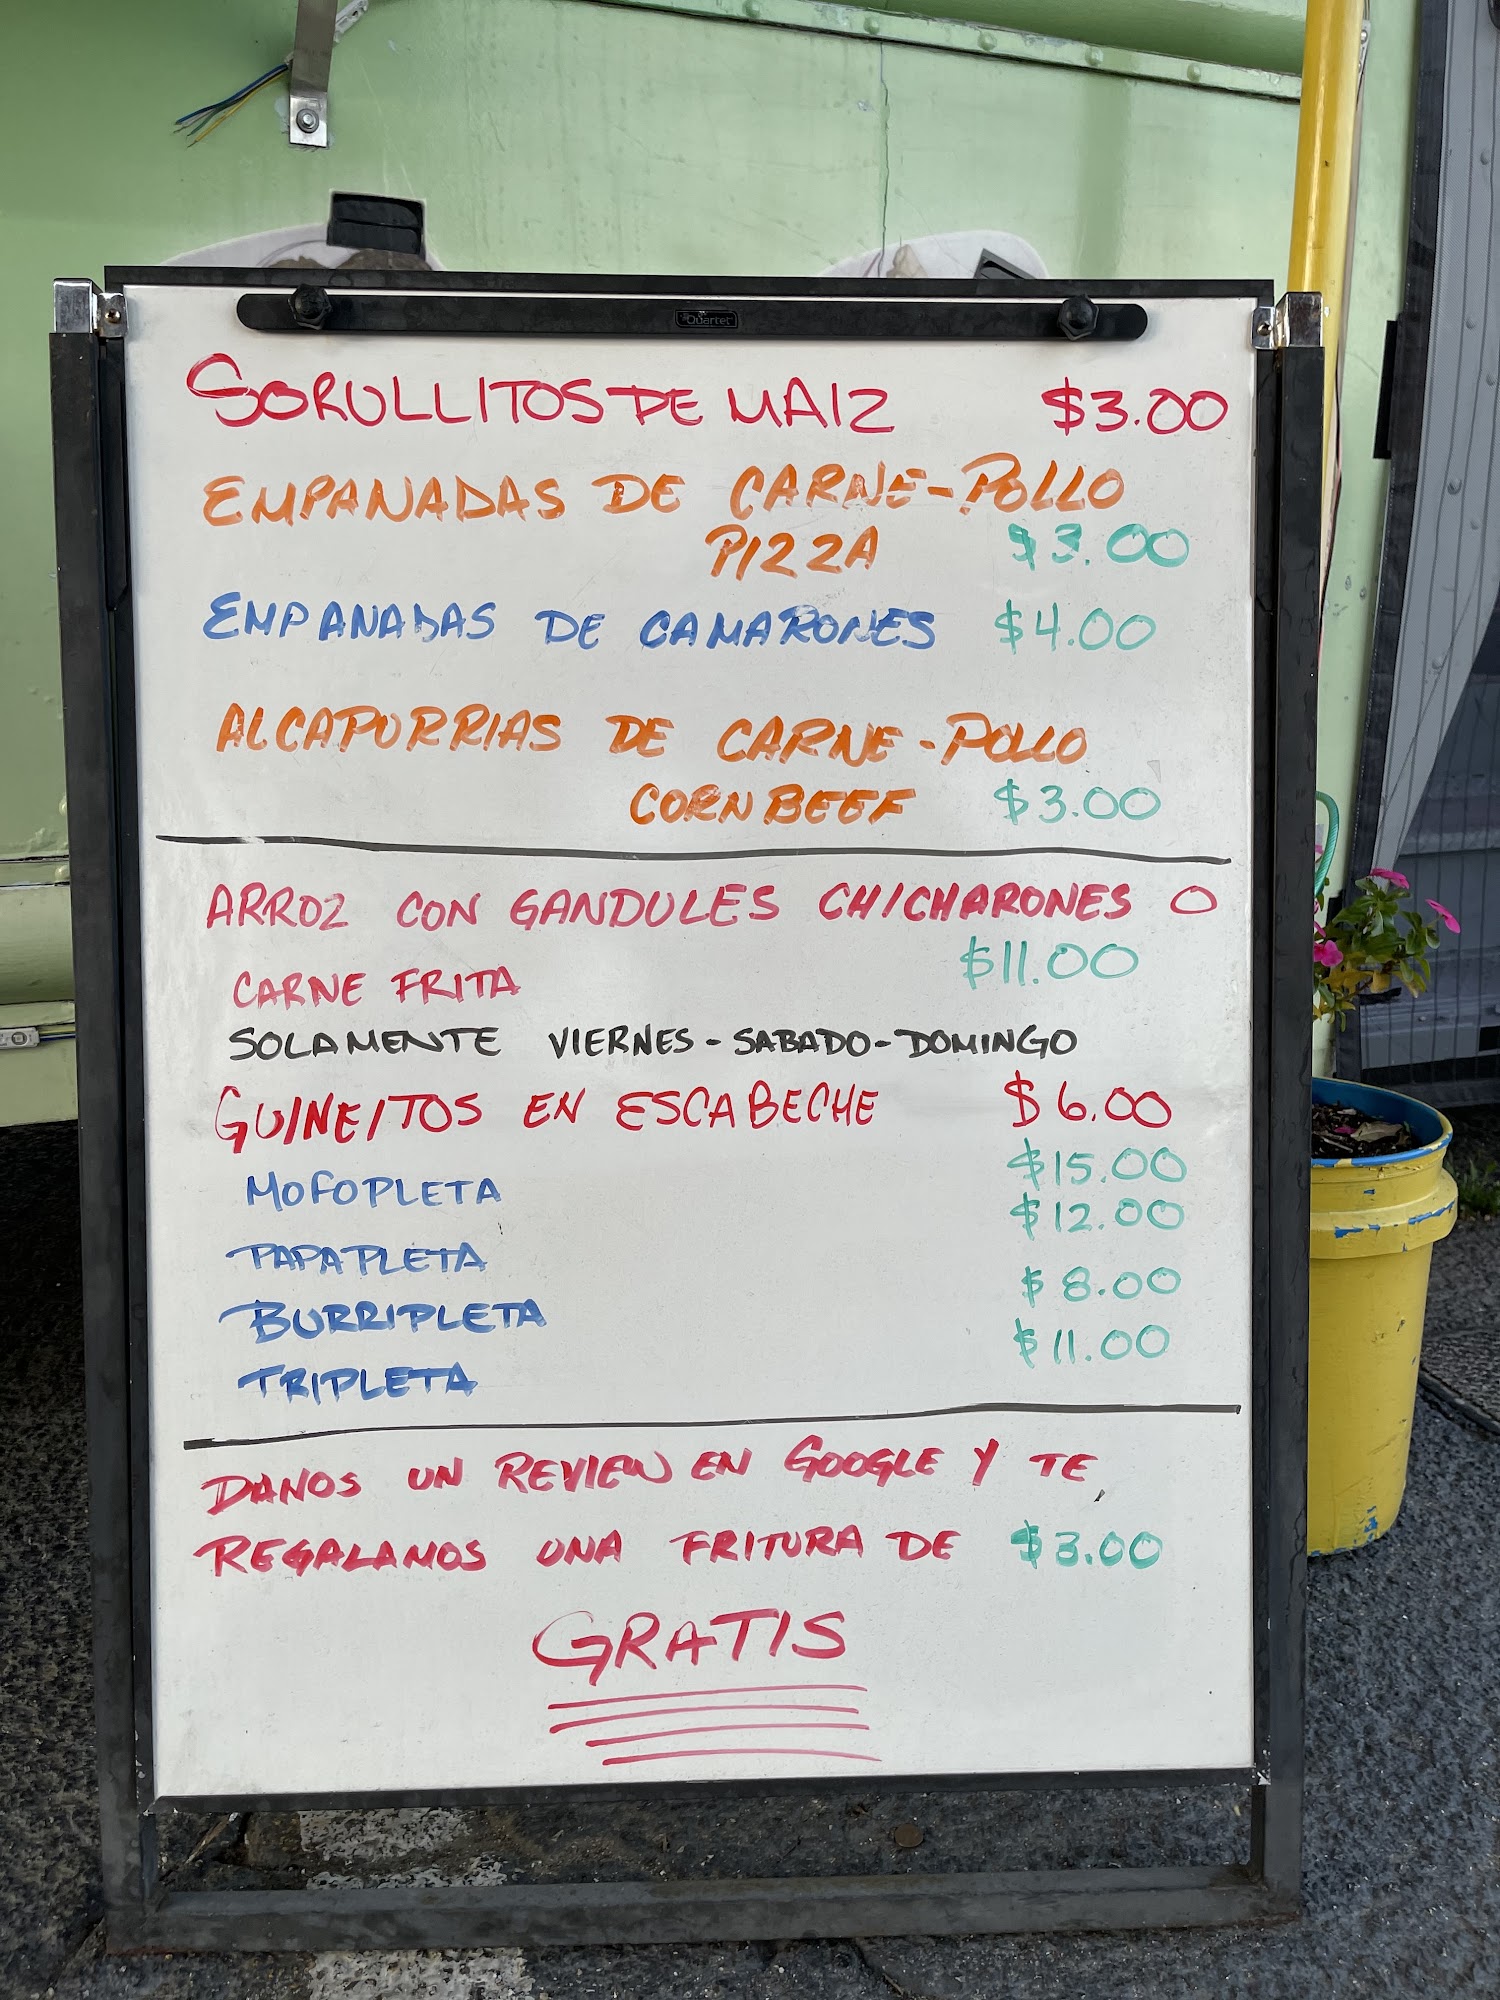 Quartet
SORULLITOS DE MAIZ $3.00
EMPANADAS DE CARNE-POLLO
PIZZA $3.00
EMPANADAS DE CAMARONES $4.00
ALCAPURRIAS DE CARNE-POLLO
CORN BEEF $3.00
ARROZ CON GANDULES CHICHARONES O
CARNE FRITA $11.00
SOLAMENTE VIERNES-SABADO-DOMINGO
GUINEITOS EN ESCABECHE $6.00
MOFOPLETA $15.00
PAPAPLETA $12.00
BURRIPLETA $8.00
TRIPLETA $11.00
DANOS UN REVIEW EN GOOGLE Y TE
REGALAMOS UNA FRITURA DE $3.00
GRATIS